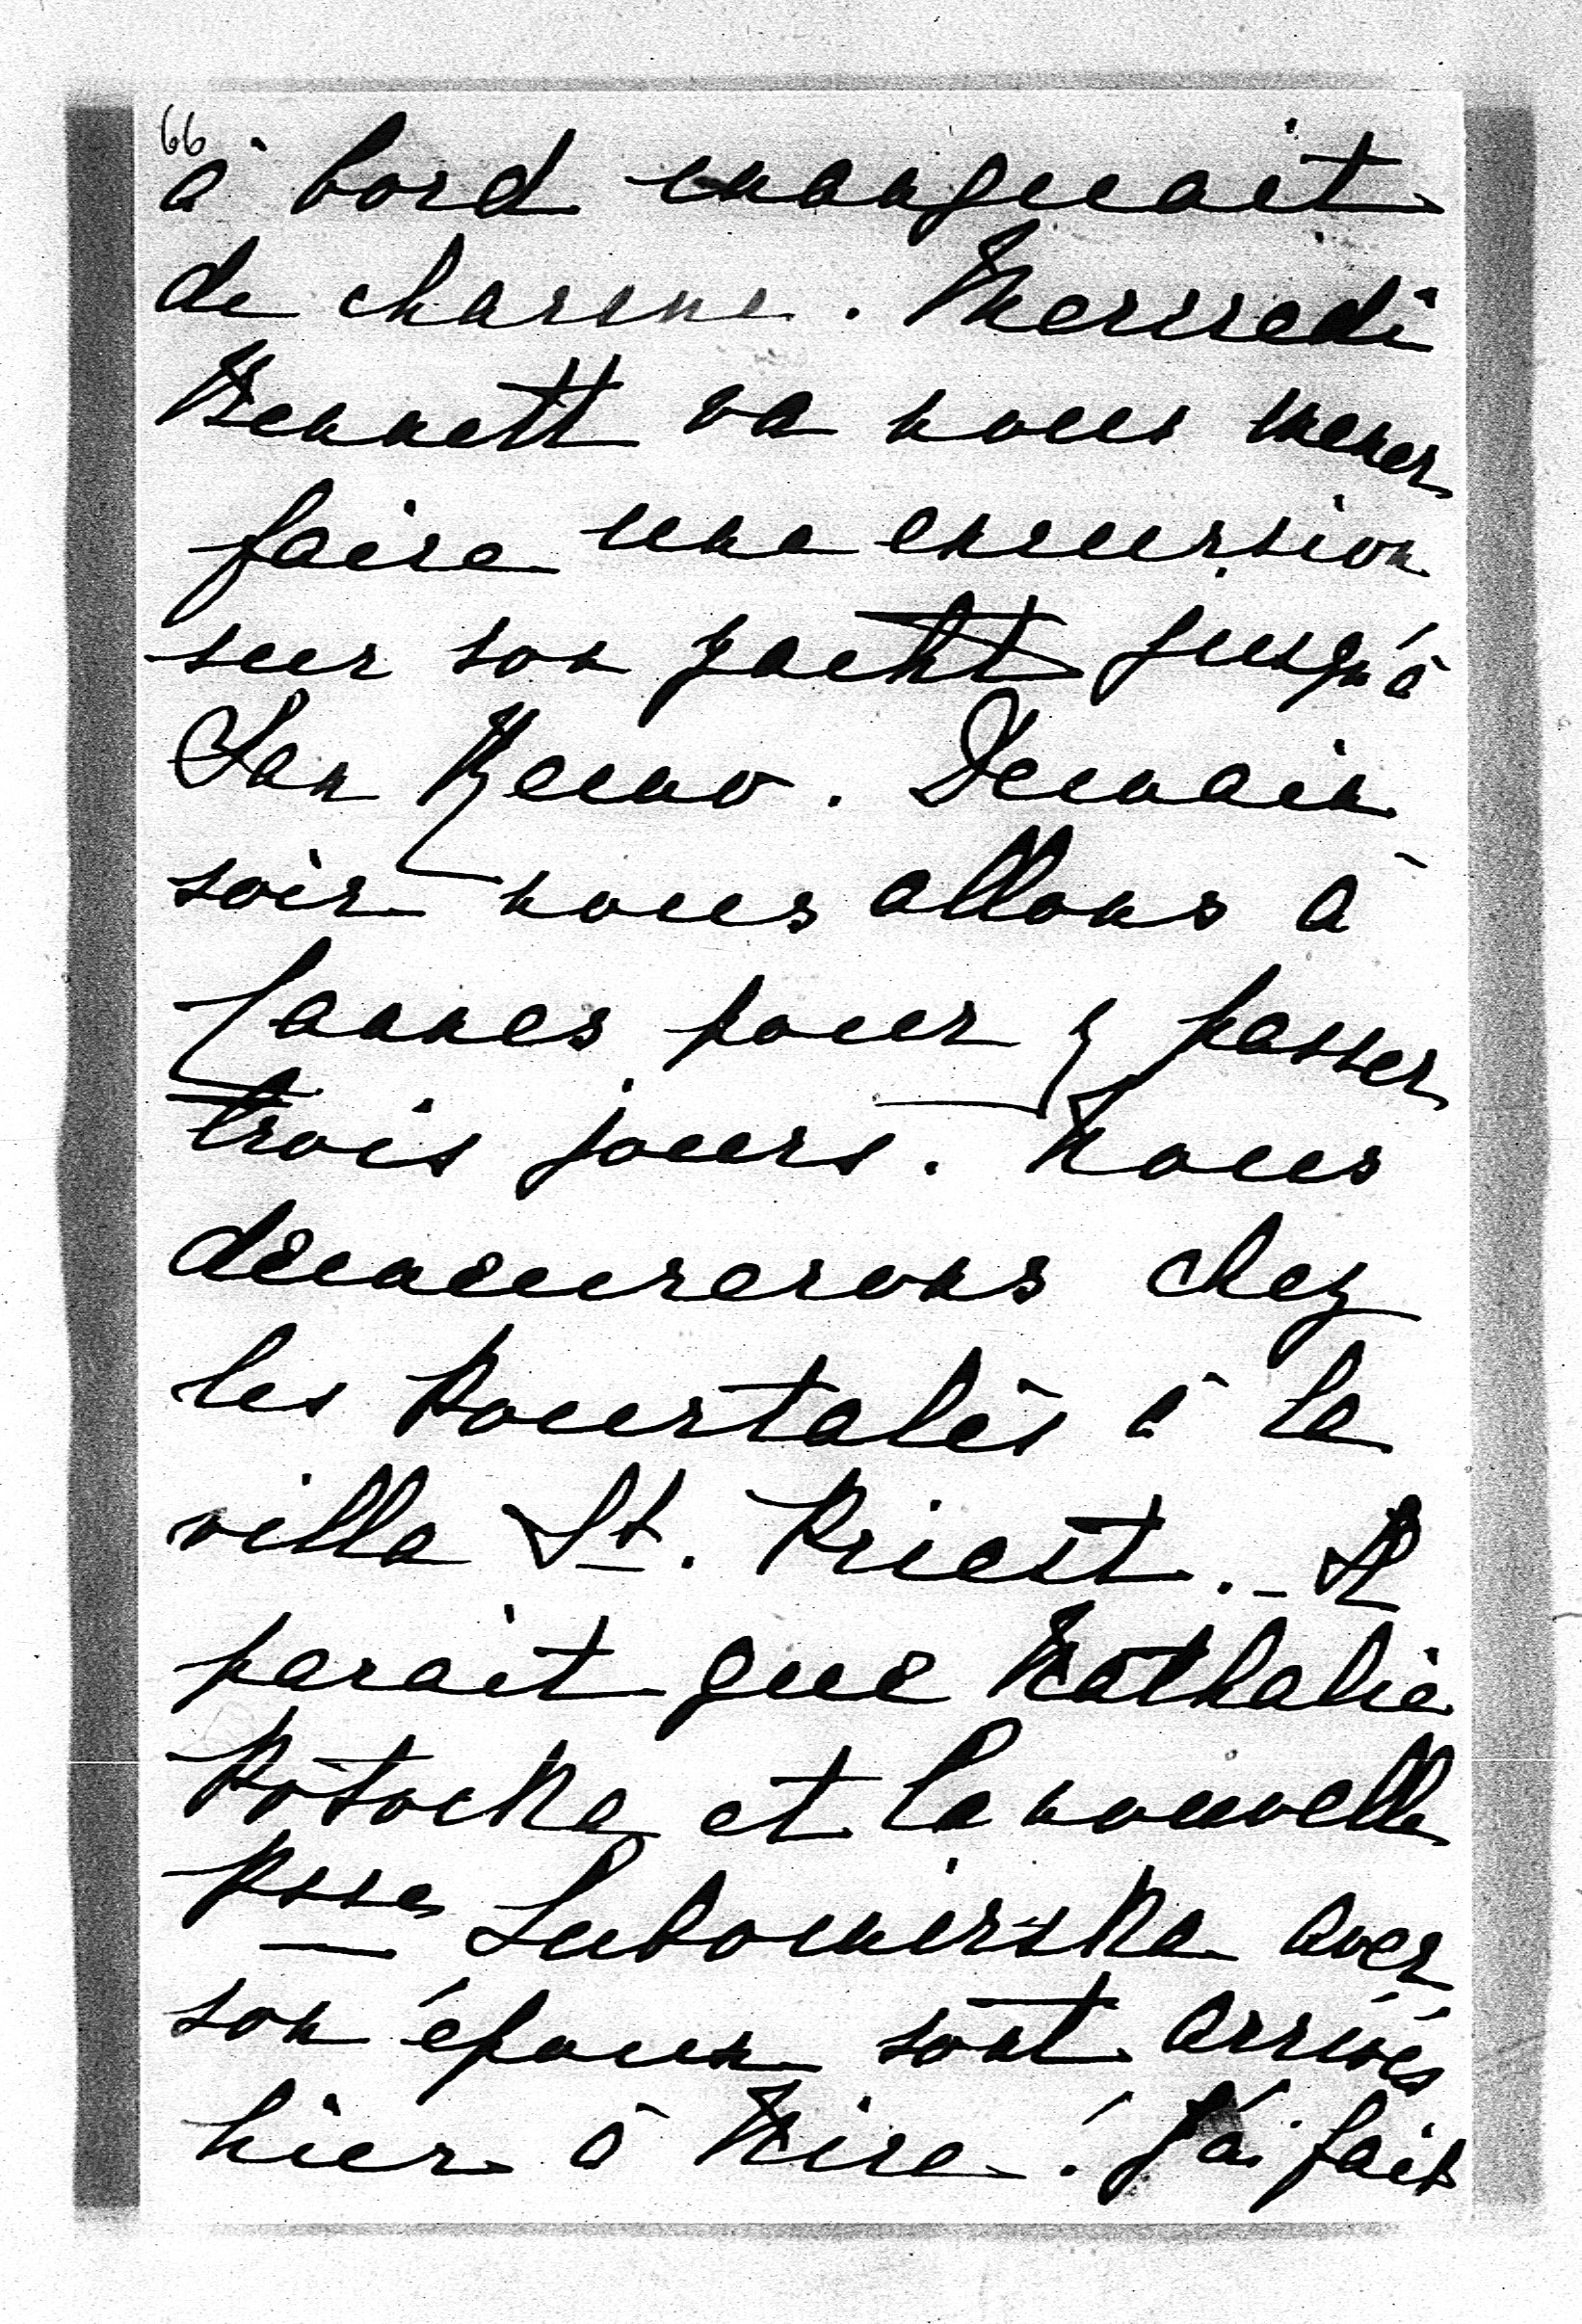 66
à bord manquait
de charme. Mercredi
Bennett va nous mener
faire une excursion
sur son yacht jusqu'à
San Remo. Demain
soir nous allons à
Cannes pour y passer
trois jours. Nous
demeurerons chez
les Pourtalès à la
villa St. Priest. - Il
parait que Nathalie
Potocka et la nouvelle
Psse Lubomirska avec
son époux sont arrivés
hier à Nice. J'ai fait